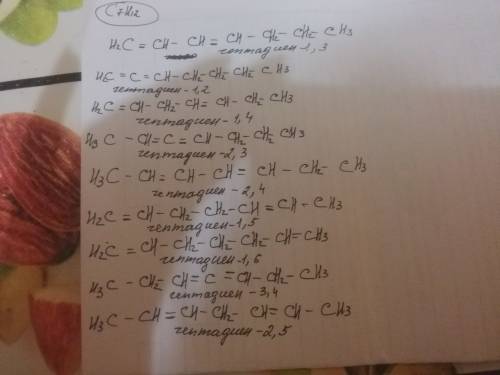 C7H12
H2C = CH - CH = CH - CH2 - CH2 - CH3
гептадиен-1,3
H2C = C = CH - CH2 - CH2 - CH2 - CH3
гептадиен-1,2
H2C = CH - CH2 - CH = CH - CH2 - CH3
гептадиен-1,4
H3C - CH = C = CH - CH2 - CH2 CH3
гептадиен-2,3
H3C - CH = CH - CH = CH - CH2 - CH3
гептадиен-2,4
H2C = CH - CH2 - CH2 - CH = CH - CH3
гептадиен-1,5
H2C = CH - CH2 - CH2 - CH2 - CH = CH3
гептадиен-1,6
H3C - CH2 - CH = C = CH - CH2 - CH3
гептадиен-3,4
H3C - CH = CH - CH2 - CH = CH - CH3
гептадиен-2,5